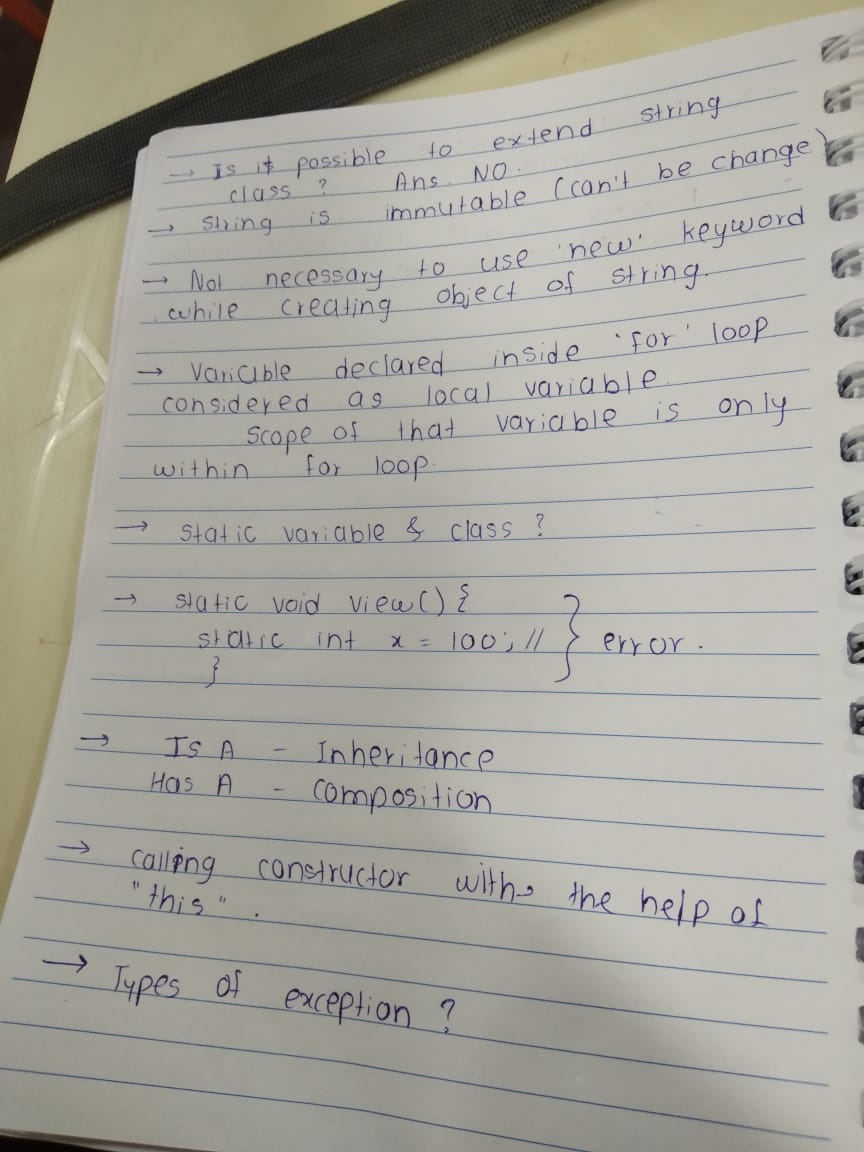 → Is it possible to extend string
class ? Ans. NO.
→ string is immutable (can't be change)
→ Not necessary to use 'new' keyword
while creating object of string.
→ Variable declared inside 'for' loop
considered as local variable.
scope of that variable is only
within for loop.
→ static variable & class ?
→ static void view() {
static int x = 100; // } error.
}
→ Is A - Inheritance
Has A - composition
→ calling constructor with the help of
"this".
→ Types of exception ?